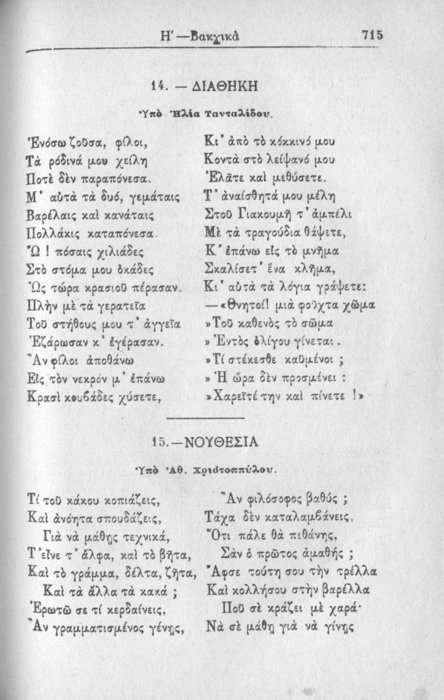 Η′—Βακχικὰ 715
14. — ΔΙΑΘΗΚΗ
Ὑπὸ Ἠλία Τανταλίδου.
Ἐνόσω ζοῦσα, φίλοι,
Τὰ ῥόδινά μου χείλη
Ποτὲ δὲν παραπόνεσα.
Μ᾽ αὐτὰ τὰ δυό, γεμάταις
Βαρέλαις καὶ κανάταις
Πολλάκις καταπόνεσα.
Ὢ ! πόσαις χιλιάδες
Στὸ στόμα μου ὀκάδες
Ὡς τώρα κρασιοῦ πέρασαν.
Πλὴν μὲ τὰ γερατεῖα
Τοῦ στήθους μου τ᾽ ἀγγεῖα
Ἐζάρωσαν κ᾽ ἐγέρασαν.
Ἂν φίλοι ἀποθάνω
Εἰς τὸν νεκρόν μ᾽ ἐπάνω
Κρασὶ κουβάδες χύσετε,
Κι᾽ ἀπὸ τὸ κόκκινό μου
Κοντὰ στὸ λείψανό μου
Ἐλᾶτε καὶ μεθύσετε.
Τ᾽ ἀναίσθητά μου μέλη
Στοῦ Γιακουμῆ τ᾽ ἀμπέλι
Μὲ τὰ τραγούδια θάψετε,
Κ᾽ ἐπάνω εἰς τὸ μνῆμα
Σκαλίσετ᾽ ἕνα κλῆμα,
Κι᾽ αὐτὰ τὰ λόγια γράψετε:
—«Θνητοί! μιὰ φοῦχτα χῶμα
»Τοῦ καθενὸς τὸ σῶμα
»Ἐντὸς ὀλίγου γίνεται.
»Τί στέκεσθε καϋμένοι ;
»Ἡ ὥρα δὲν προσμένει :
»Χαρεῖτέ την καὶ πίνετε !»
15.—ΝΟΥΘΕΣΙΑ
Ὑπὸ Ἀθ. Χριστοππύλου.
Τί τοῦ κάκου κοπιάζεις,
Καὶ ἀνόητα σπουδάζεις,
Γιὰ νὰ μάθῃς τεχνικά,
Τ᾽ εἶνε τ᾽ ἄλφα, καὶ τὸ βῆτα,
Καὶ τὸ γράμμα, δέλτα, ζῆτα,
Καὶ τὰ ἄλλα τὰ κακά ;
Ἐρωτῶ σε τί κερδαίνεις,
Ἂν γραμματισμένος γένῃς,
Ἂν φιλόσοφος βαθύς ;
Τάχα δὲν καταλαμβάνεις,
Ὅτι πάλε θὰ πιθάνῃς,
Σὰν ὁ πρῶτος ἀμαθής ;
Ἄφσε τούτη σου τὴν τρέλλα
Καὶ κολλήσου στὴν βαρέλλα
Ποῦ σὲ κράζει μὲ χαρά·
Νὰ σὲ μάθῃ γιὰ νὰ γίνῃς